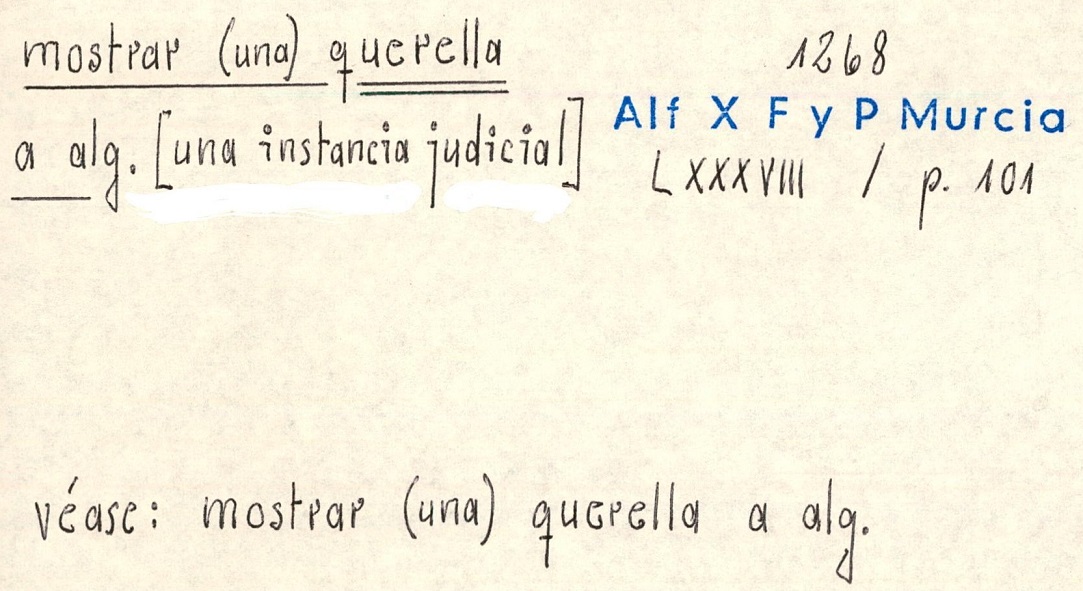 mostrar (una) querella
1268
a alg. [una instancia judicial]
Alf X F y P Murcia
LXXXVIII / p. 101
véase: mostrar (una) querella a alg.